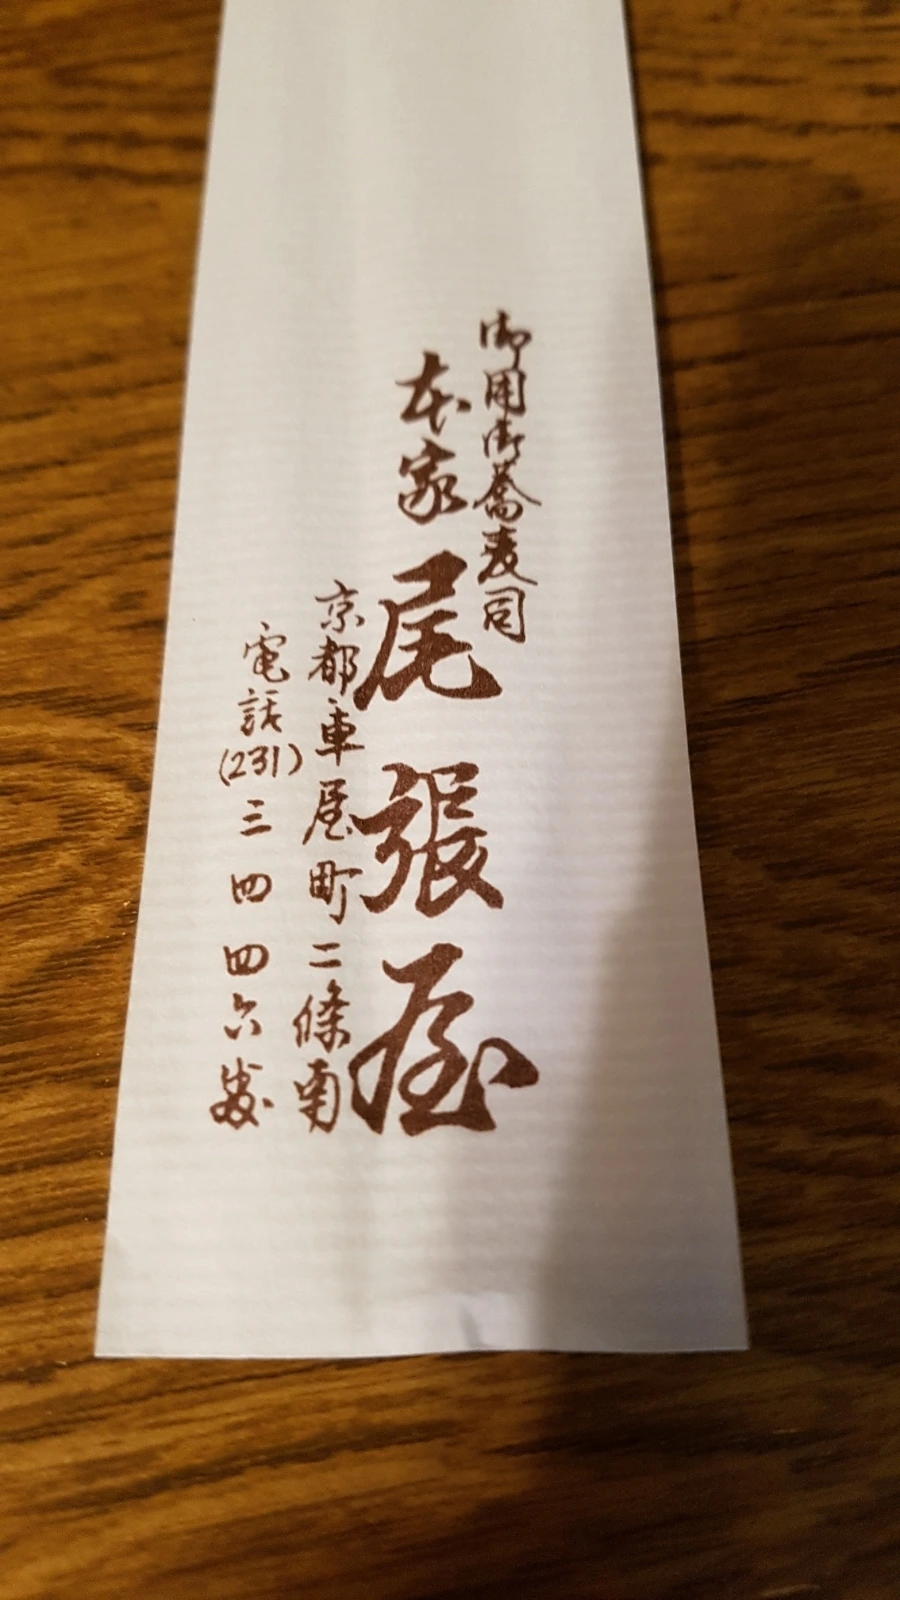 御用御蕎麦司
本家尾張屋
京都車屋町二條南
電話(231)三四四六番